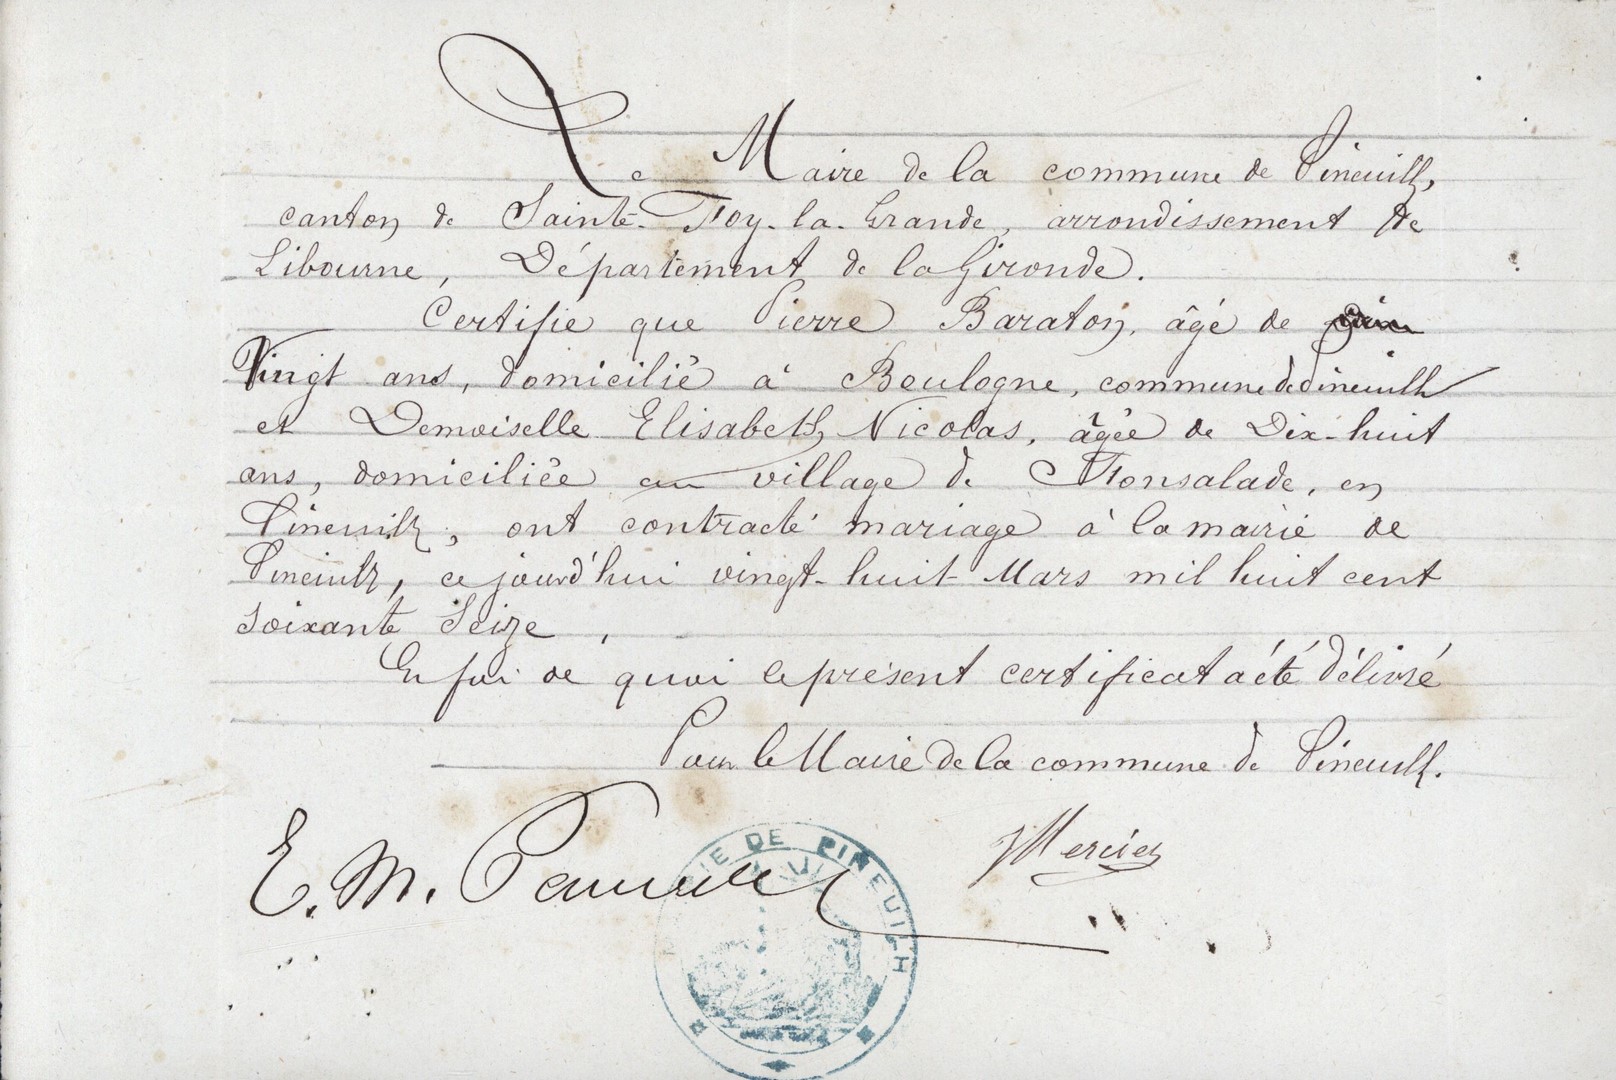 Le Maire de la commune de Pineuilh,
canton de Sainte-Foy-la-Grande, arrondissement de
Libourne, Département de la Gironde.
Certifie que Pierre Baraton, âgé de
Vingt ans, domicilié à Boulogne, commune de Pineuilh
et Demoiselle Elisabeth Nicolas, âgée de Dix-huit
ans, domiciliée au village de Fonsalade, en
Pineuilh, ont contracté mariage à la mairie de
Pineuilh, ce jourd'hui vingt-huit Mars mil huit cent
soixante Seize.
En foi de quoi le présent certificat a été délivré
Pour le Maire de la commune de Pineuilh.
E. M.
Mercier
MAIRIE DE PINEUILH